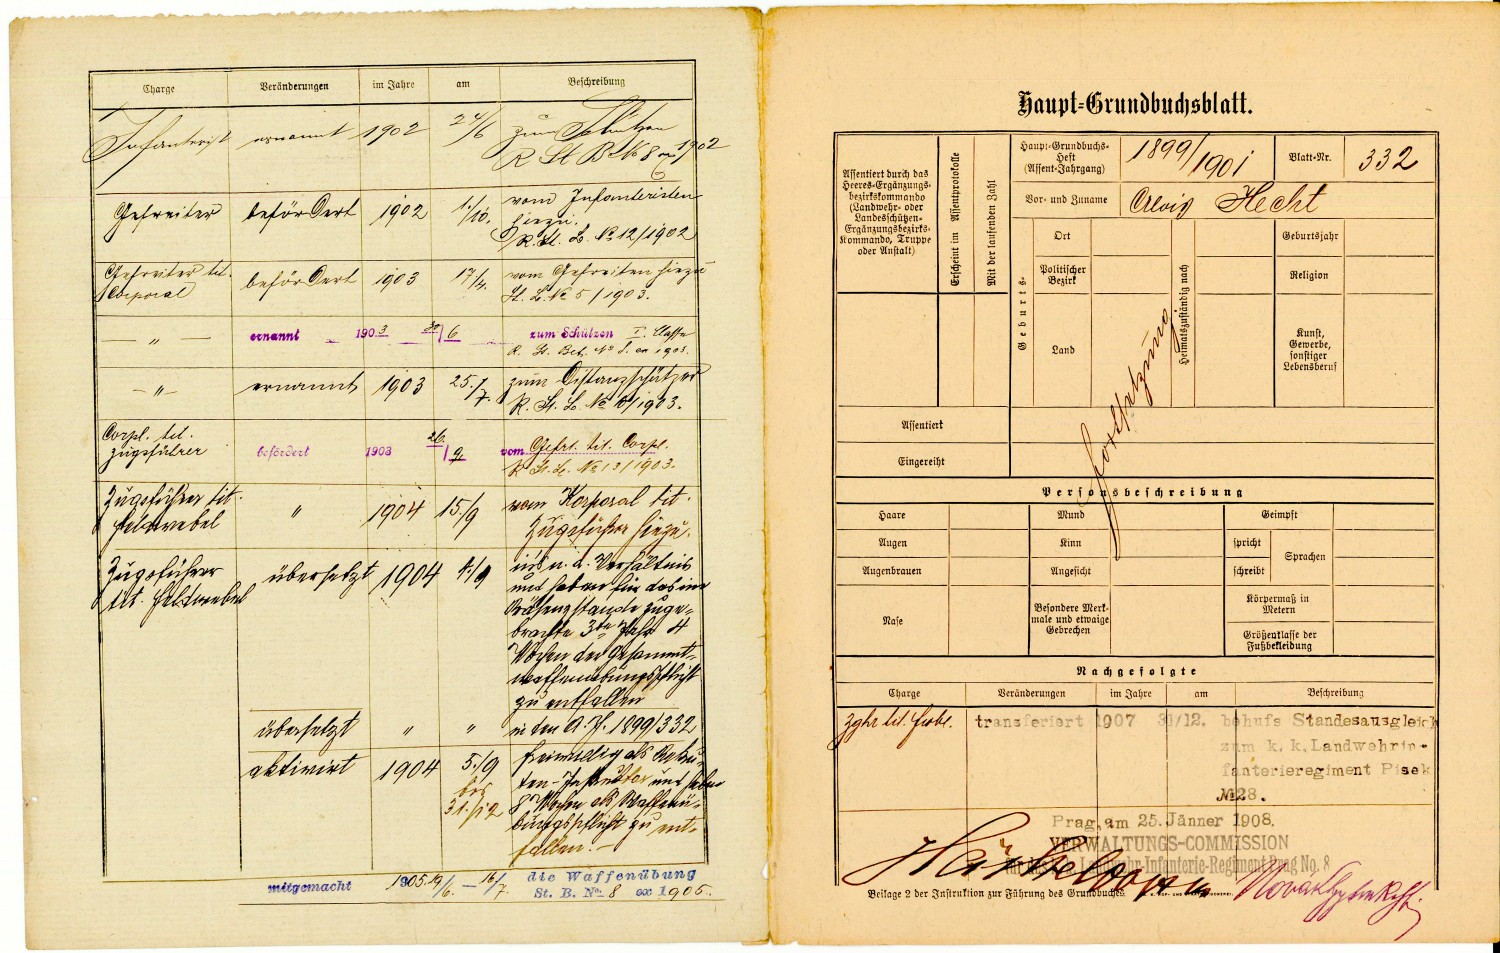 Charge Veränderungen im Jahre am Beschreibung
Infanterist ernannt 1902 24/6 zum Schützen
R St B No 8 ex 1902
Gefreiter befördert 1902 1./10. vom Infanteristen
hiezu.
R. St. B. No 12/1902
Gefreiter tit. Corporal befördert 1903 17/4. vom Gefreiten hiezu
St. B. No 5/1903.
— „ — ernannt 1903 30/6 zum Schützen I. Classe
R. St. Bef. No 8. ex 1903.
— „ — ernannt 1903 25./7. zum Distanzschützer
R. St. B. No 10/1903.
Corpl. tit. Zugsführer befördert 1903 26/9 vom Gefrt. tit. Corpl.
R St. B. No 13/1903.
Zugsführer tit. Feldwebel „ 1904 15./9 vom Korporal tit.
Zugsführer hiezu.
Zugsführer tit. Feldwebel übersetzt 1904
und haben für das im
Präsenzstande zuge-
brachte 3te Jahr 4
Wochen der Gesammt-
waffenübungspflicht
zu entfallen
übersetzt „ „ in den A. J. 1899/332
aktivirt 1904 5./9 bis 31./12 freiwillig als Rekru-
ten-Instruktor und haben
8 Wochen als Waffenü-
bungspflicht zu ent-
fallen. —
mitgemacht 1905 19/6. — 16/7. die Waffenübung
St. B. No. 8 ex 1905.
Haupt-Grundbuchsblatt.
Assentiert durch das
Heeres-Ergänzungs-
bezirkskommando
(Landwehr- oder
Landesschützen-
Ergänzungsbezirks-
Kommando, Truppe
oder Anstalt)
Erscheint im Assentprotokolle
Mit der laufenden Zahl
Haupt-Grundbuchs-
Heft
(Assent-Jahrgang)
1899/1901
Blatt-Nr. 332
Vor- und Zuname Alois Hecht
Geburts-
Ort
Politischer
Bezirk
Land
Heimatszuständig nach
Geburtsjahr
Religion
Kunst,
Gewerbe,
sonstiger
Lebensberuf
Fortsetzung
Assentiert
Eingereiht
Personsbeschreibung
Haare Mund Geimpft
Augen Kinn spricht
Sprachen
Augenbrauen Angesicht schreibt
Nase
Besondere Merk-
male und etwaige
Gebrechen
Körpermaß in
Metern
Größenklasse der
Fußbekleidung
Nachgefolgte
Charge Veränderungen im Jahre am Beschreibung
Zgfhr tit. Fwbl. transferiert 1907 31/12. behufs Standesausgleich
zum k.k.Landwehrin-
fanterieregiment Pisek
№28.
Prag,am 25.Jänner 1908.
VERWALTUNGS-COMMISSION
für das k.k. Landwehr-Infanterie-Regiment Prag No. 8
Beilage 2 der Instruktion zur Führung des Grundbuches